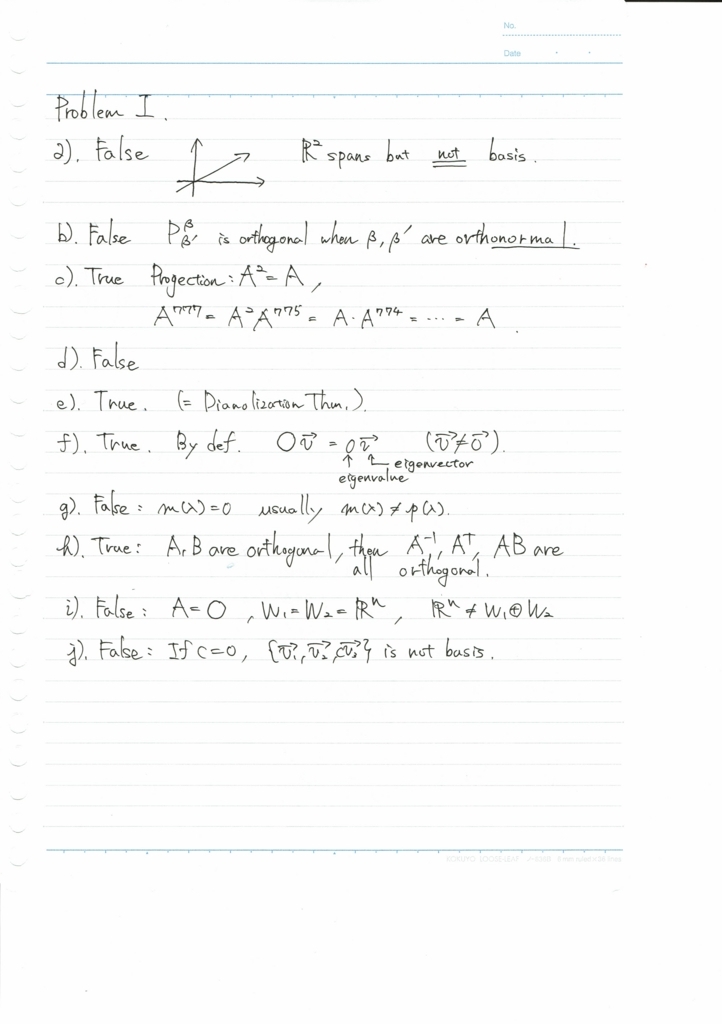 No.
Date
Problem I.
a). False R² spans but not basis.
b). False P_β'^β is orthogonal when β, β' are orthonormal.
c). True Progection: A² = A,
A⁷⁷⁷ = A²A⁷⁷⁵ = A·A⁷⁷⁴ = ··· = A.
d). False
e). True. (= Dianolization Thm.).
f). True. By def. Ov⃗ = 0v⃗ (v⃗≠0⃗).
↑ ↑ eigenvector
eigenvalue
g). False: m(λ)=0 usually m(x) ≠ p(λ).
h). True: A, B are orthogonal, then A⁻¹, Aᵀ, AB are
all orthogonal.
i). False: A = O, W₁=W₂=ℝⁿ, ℝⁿ ≠ W₁⊕W₂
j). False: If c=0, {v⃗₁, v⃗₂, cv⃗₃} is not basis.